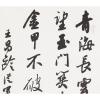 青海長雲
望玉門關
金甲不破
王昌齡